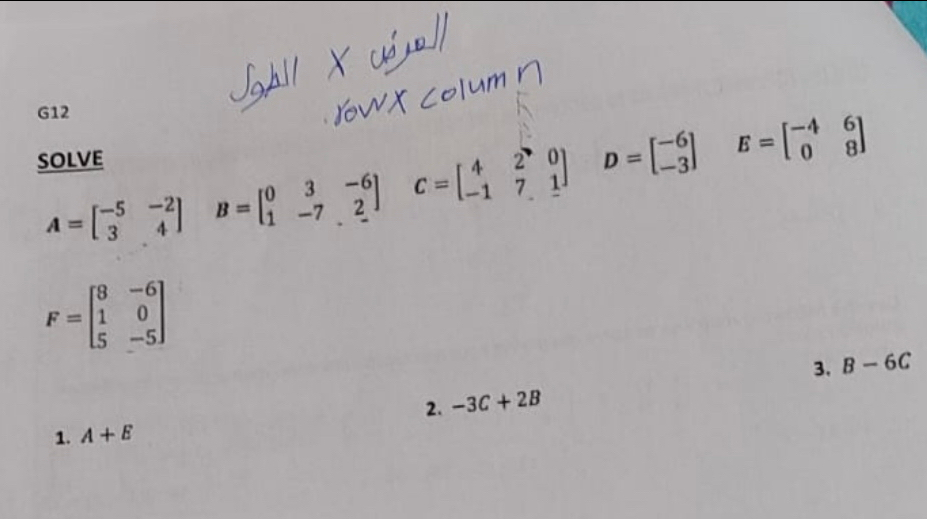 الطول X العرض
row x column
G12
SOLVE
A = [-5 -2; 3 4] B = [0 3 -6; 1 -7 2] C = [4 2 0; -1 7 1] D = [-6; -3] E = [-4 6; 0 8]
F = [8 -6; 1 0; 5 -5]
1. A + E
2. -3C + 2B
3. B - 6C